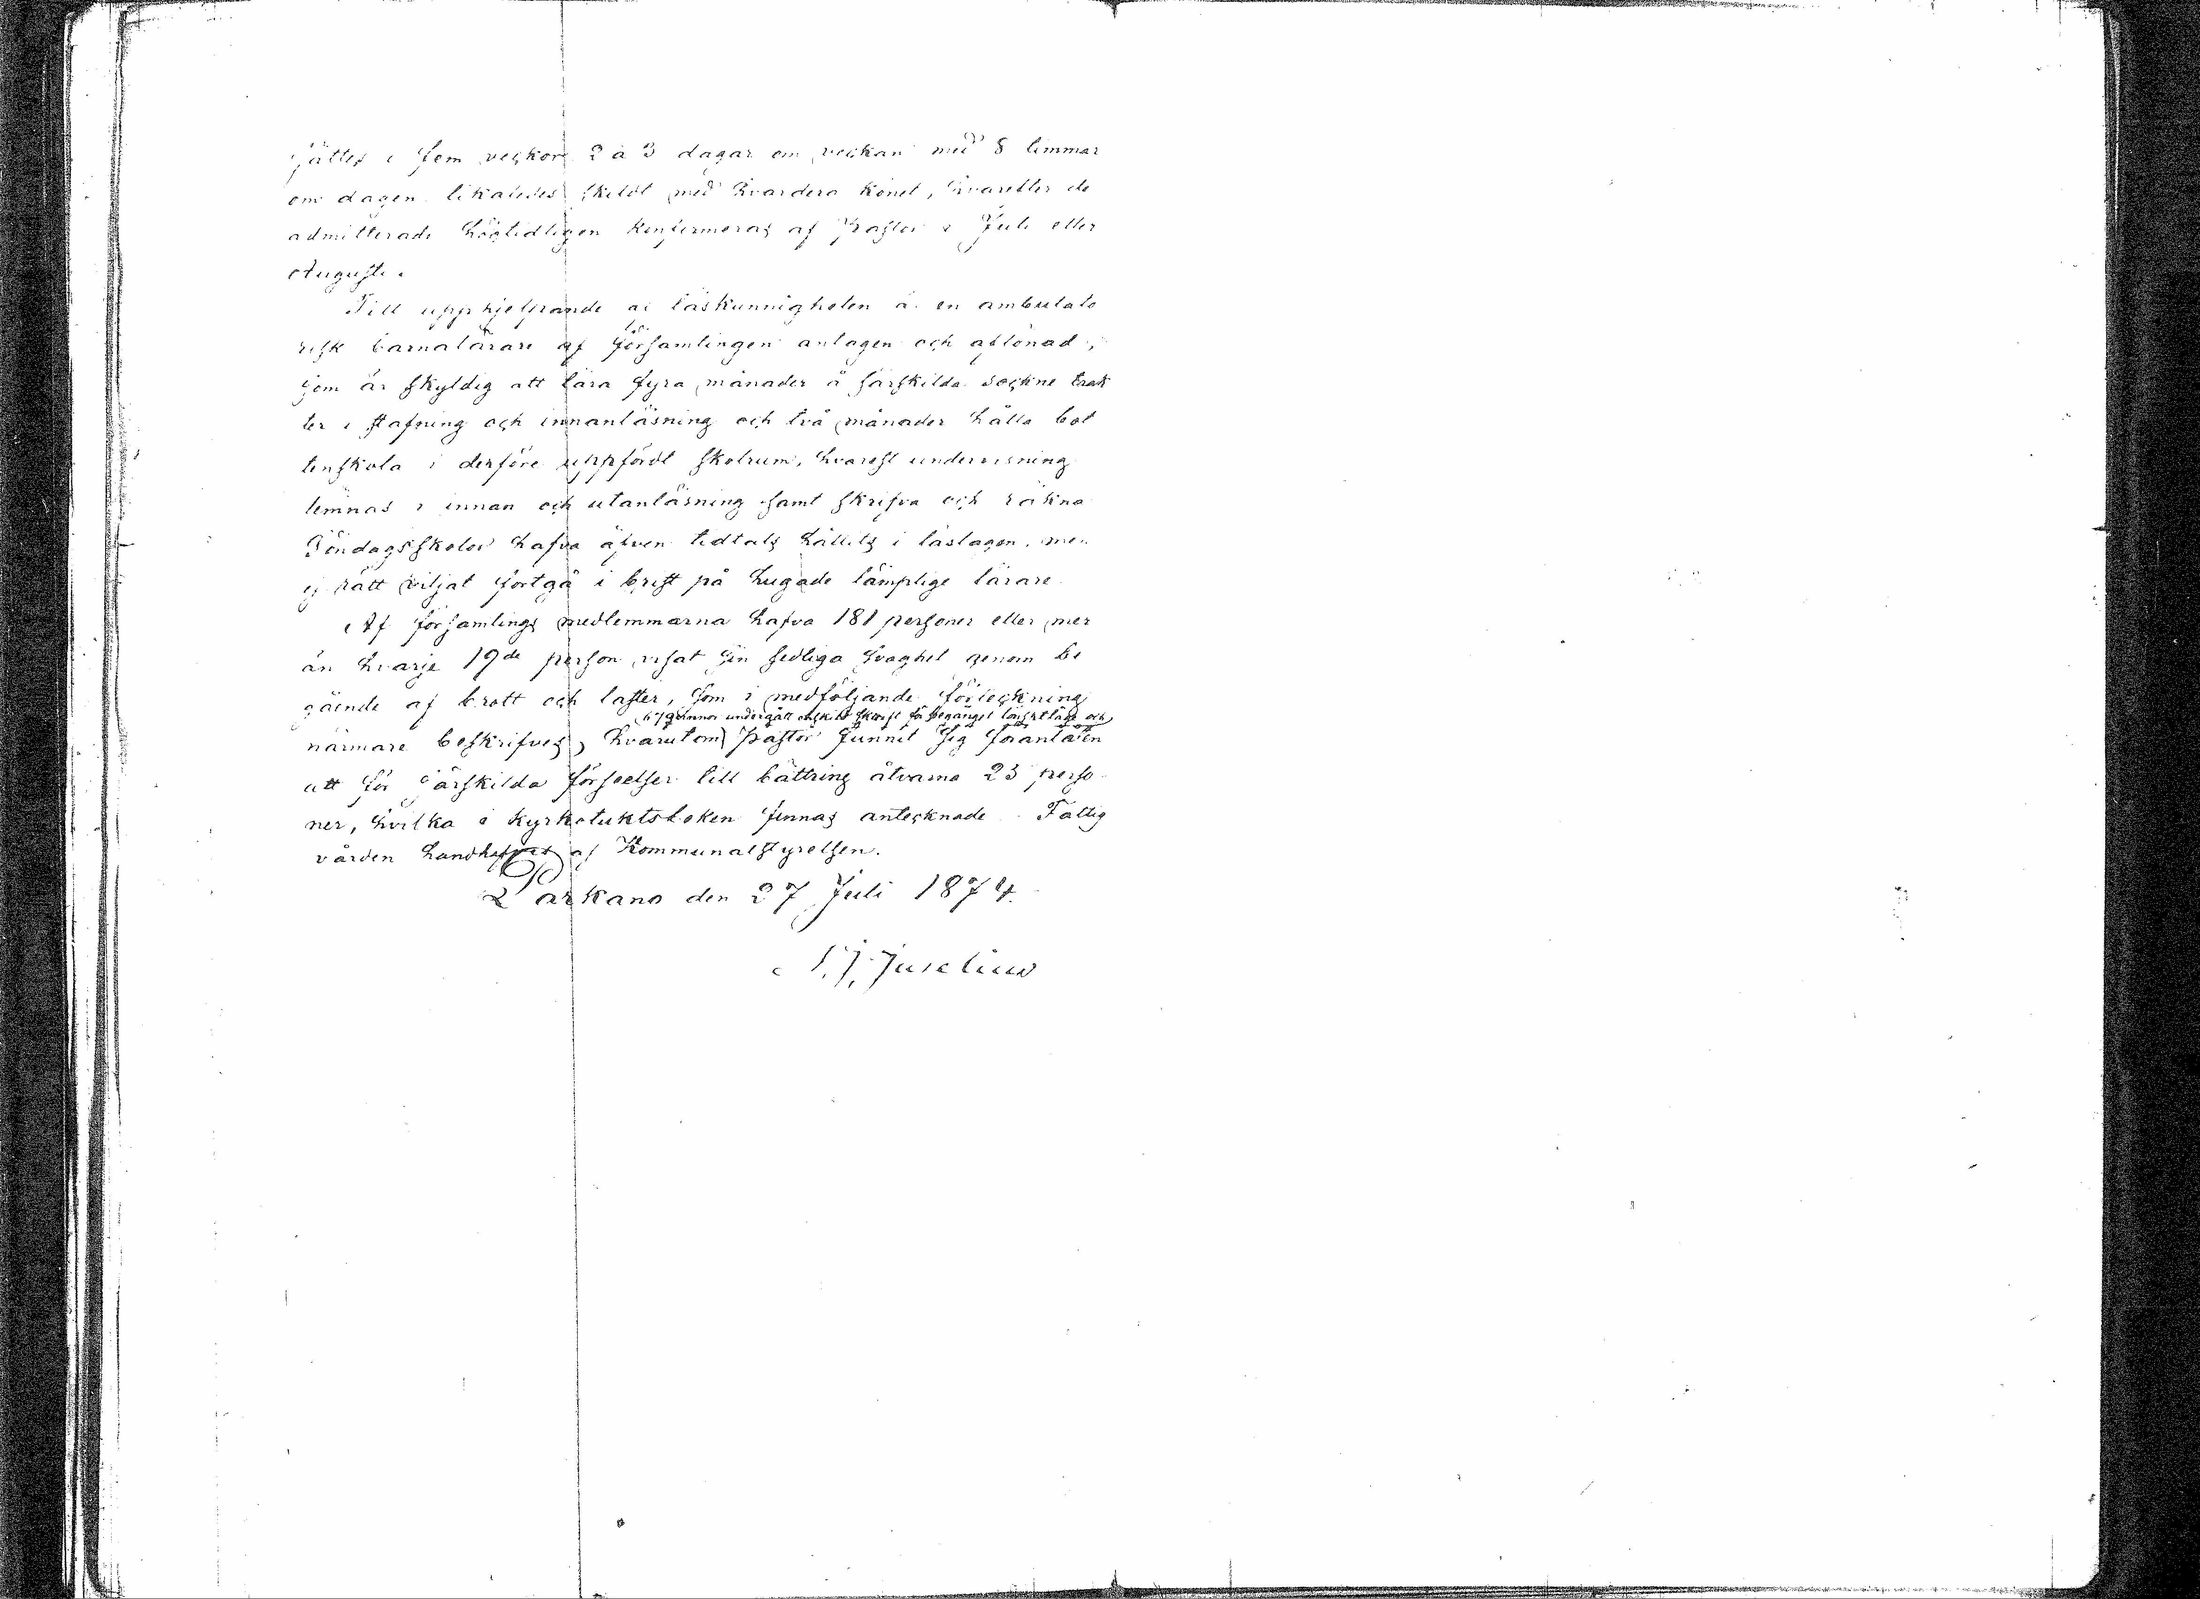 sättes i fem veckor 2 à 3 dagar om veckan med 8 timmar
om dagen likaledes skildt med hvardera könet, hvarefter de
admitterade högtidligen konfirmeras af Pastor i Juli eller
Augusti.
Till upphjelpande af läskunnigheten är en ambulato
risk barnalärare af församlingen antagen och aflönad,
som är skyldig att lära fyra månader å särskilda sockne trak
ter i stafning och innanläsning och två månader hålla bot
tenskola i derföre uppfördt skolrum, hvarest undervisning
lemnas i innan och utanläsning samt skrifva och räkna
Söndagsskolor hafva äfven tidtals hållits i läslagen, men
ej rätt viljat fortgå i brist på hugade lämplige lärare.
Af församlings medlemmarna hafva 181 personer eller mer
än hvarje 19de person visat sin sedliga svaghet genom be
gående af brott och laster, som i medföljande förteckning
qvinnor undergått enskild skrift för begånget lönskaläge och
närmare beskrifves, hvarutom Pastor funnit sig föranlåten
att för särskilda förseelser till bättring åtvarna 23 perso
ner, hvilka i kyrkotuktsboken finnas antecknade. Fattig
vården handhafves af Kommunalstyrelsen.
Parkano den 27 Juli 1874.
J. Juselius